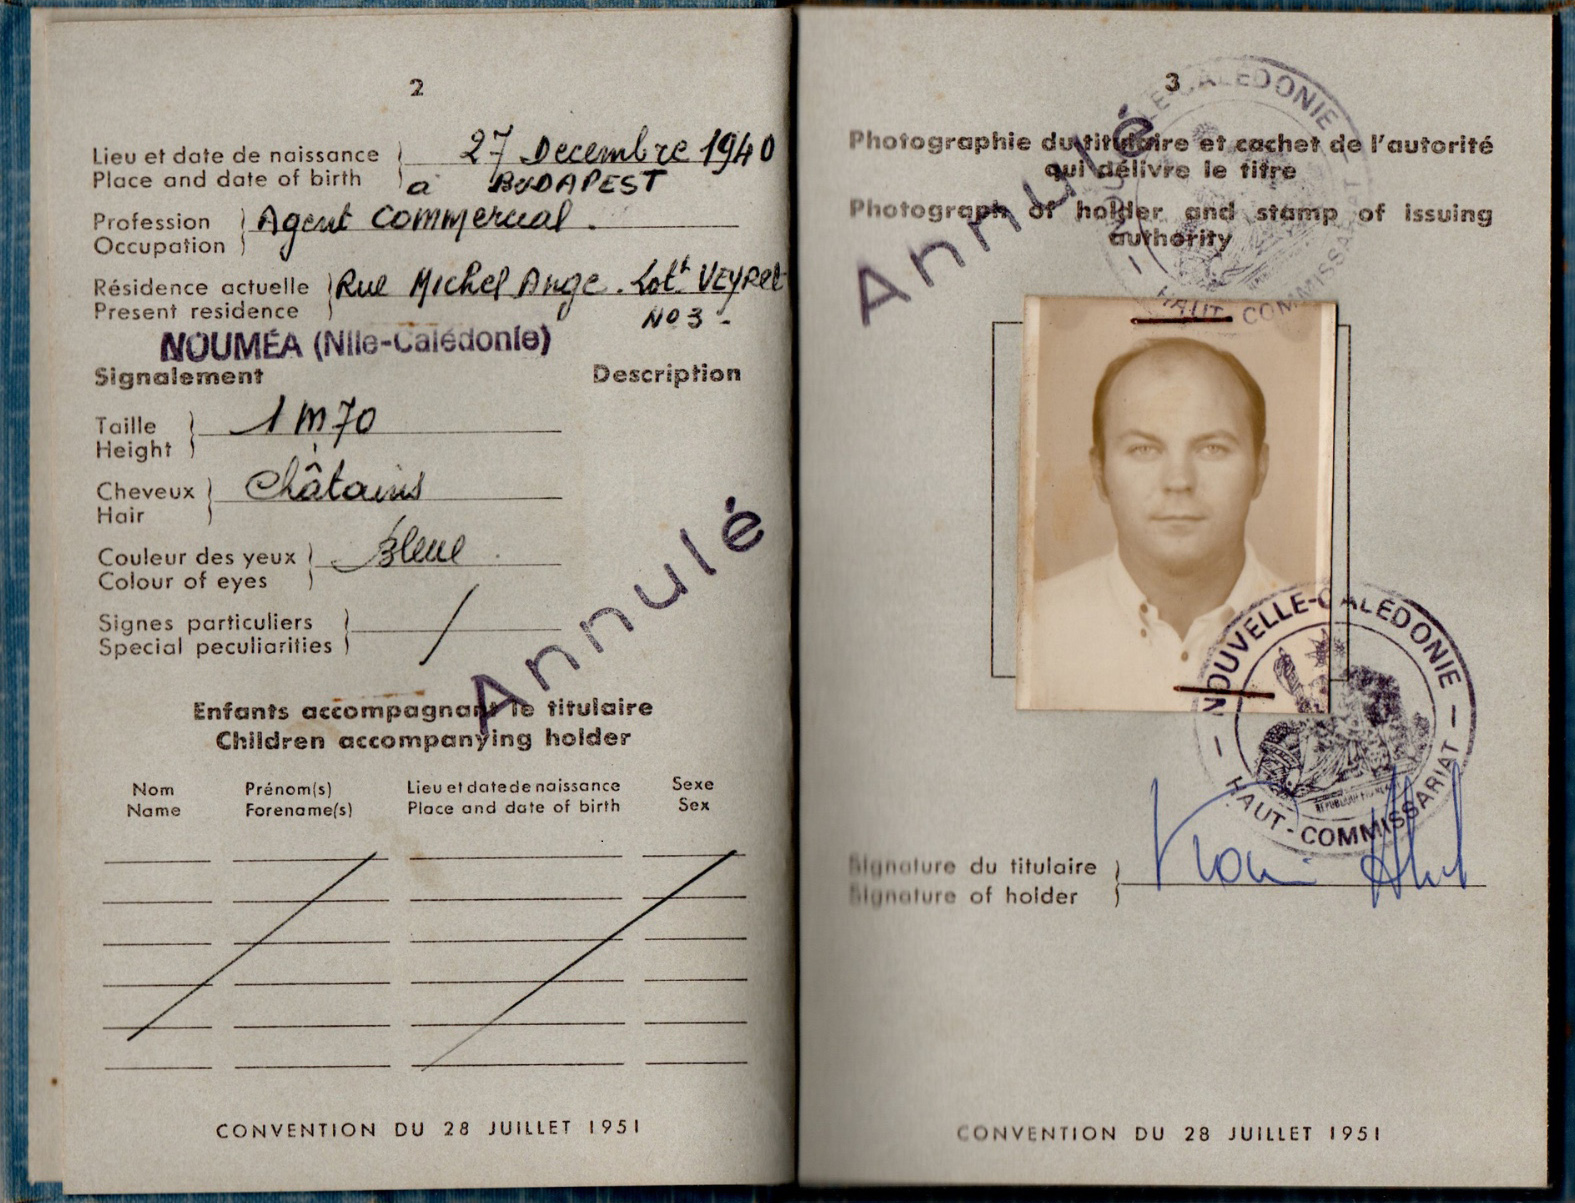 2
Lieu et date de naissance
Place and date of birth
27 Decembre 1940
a BUDAPEST
Profession
Occupation
Agent Commercial.
Résidence actuelle
Present residence
Rue Michel Ange. Lott VEYRet
No 3 -
NOUMÉA (Nlle-Calédonie)
Signalement Description
Taille
Height
1 m 70
Cheveux
Hair
Châtains
Couleur des yeux
Colour of eyes
Bleue
Signes particuliers
Special peculiarities
/
Annulé
Enfants accompagnant le titulaire
Children accompanying holder
Nom Prénom(s) Lieu et date de naissance Sexe
Name Forename(s) Place and date of birth Sex
CONVENTION DU 28 JUILLET 1951
3
Photographie du titulaire et cachet de l'autorité
qui délivre le titre
Photograph of holder and stamp of issuing
authority
Annulé
NOUVELLE-CALÉDONIE
HAUT-COMMISSARIAT
NOUVELLE-CALÉDONIE
HAUT-COMMISSARIAT
RÉPUBLIQUE FRANÇAISE
Signature du titulaire
Signature of holder
CONVENTION DU 28 JUILLET 1951